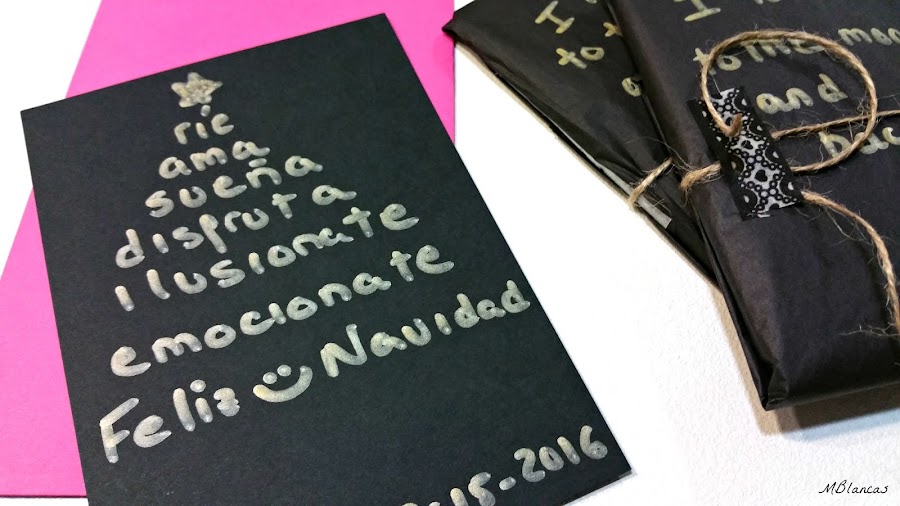 ríe
ama
sueña
disfruta
ilusionate
emocionate
Feliz Navidad
15-2016
I
to t
I
to the moo
and
bac
MBlancas